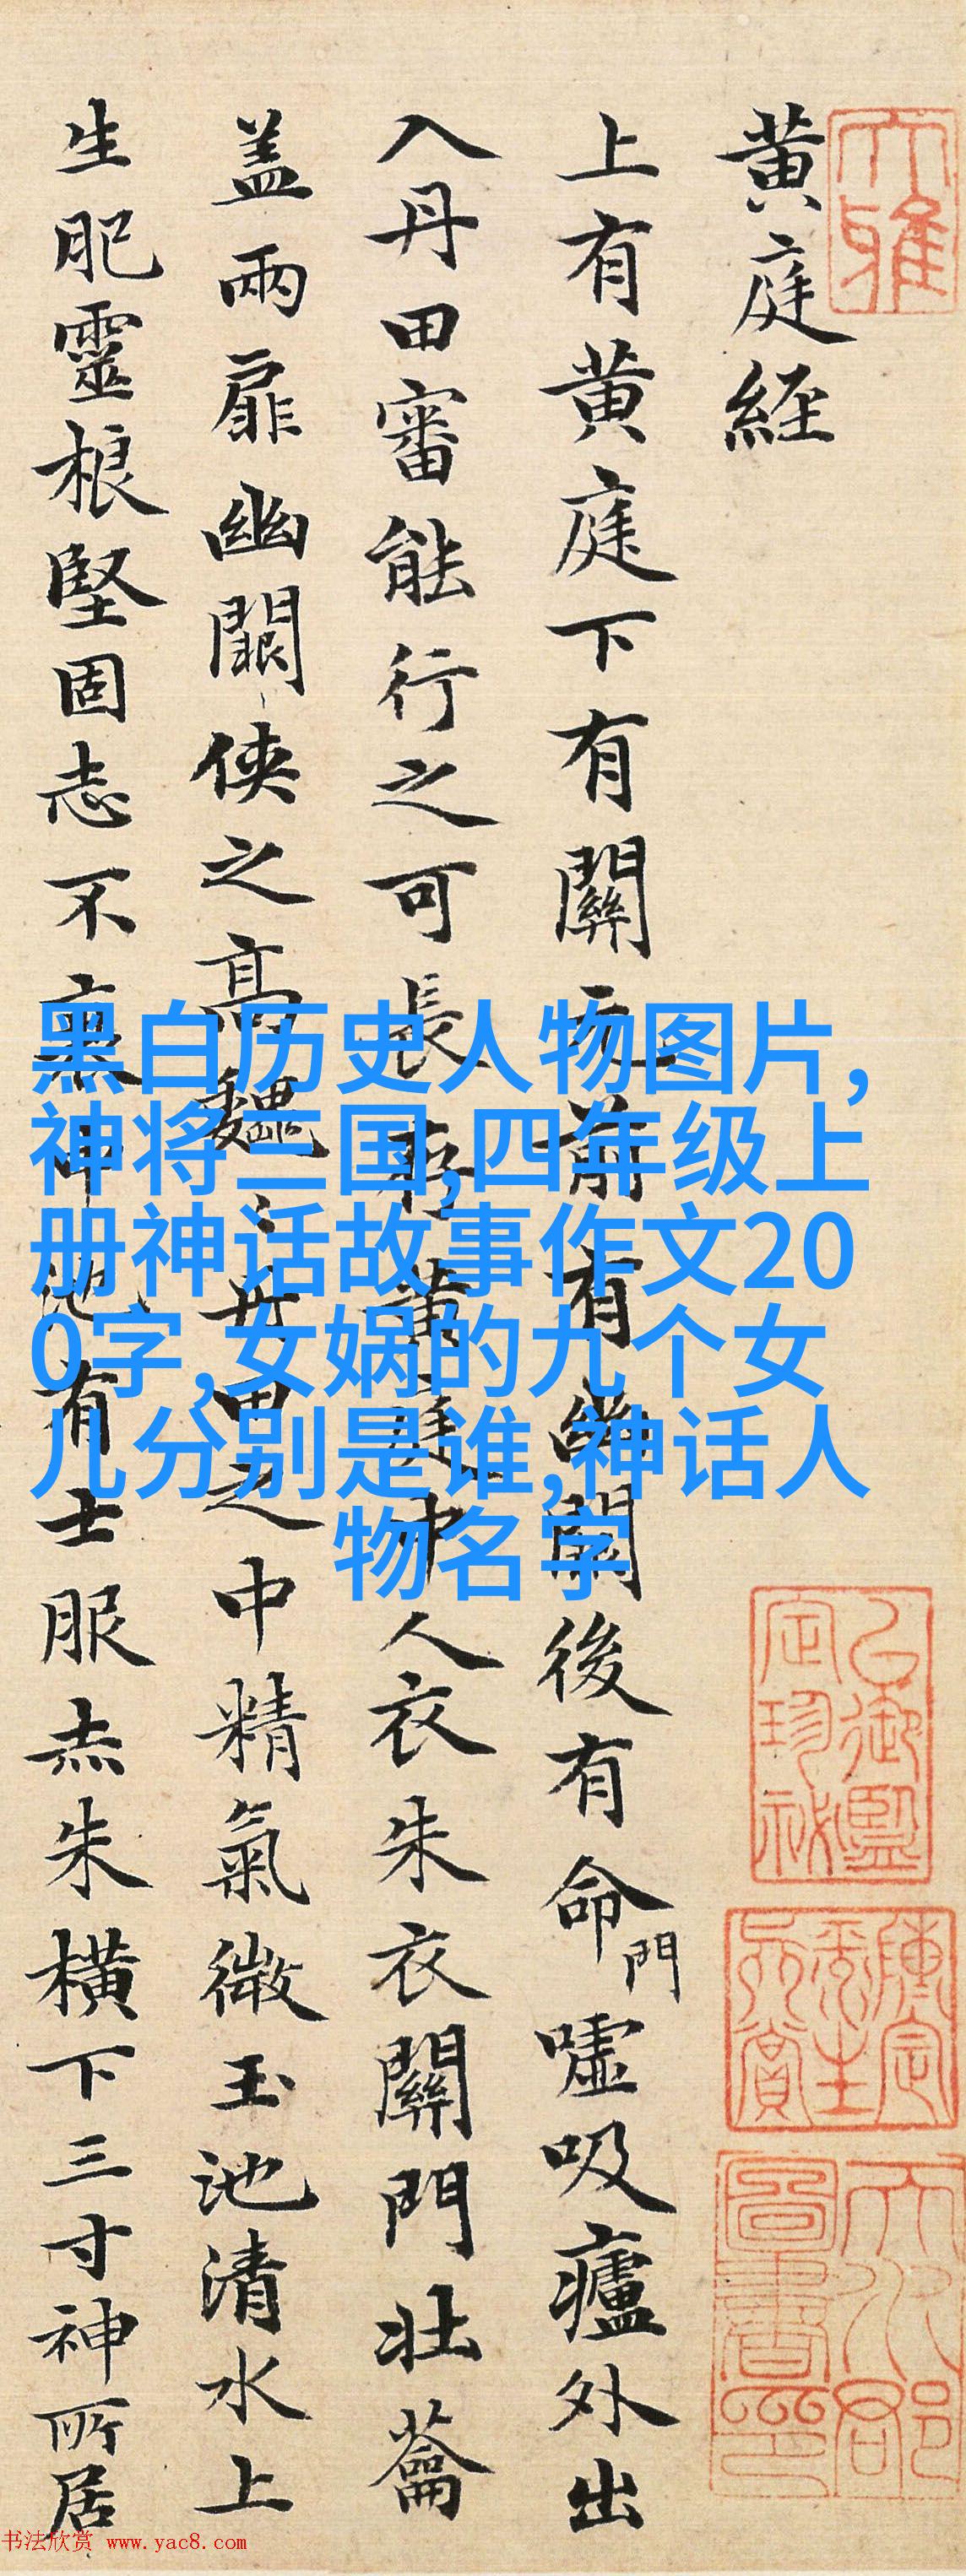 黄庭経
上有黄庭下有關元前有幽闕後有命門嘘吸廬外出
入丹田審能行之可長存黄庭中人衣朱衣關門壮蘥
盖兩扉幽闕侠之高巍巍丹田之中精氣微玉池清水上
生肥靈根堅固志不衰中池有士服赤朱横下三寸神所居
黑白历史人物图片,
神将三国,四年级上
册神话故事作文20
0字,女娲的九个女
儿分别是谁,神话人
物名字
书法欣赏 www.yac8.com